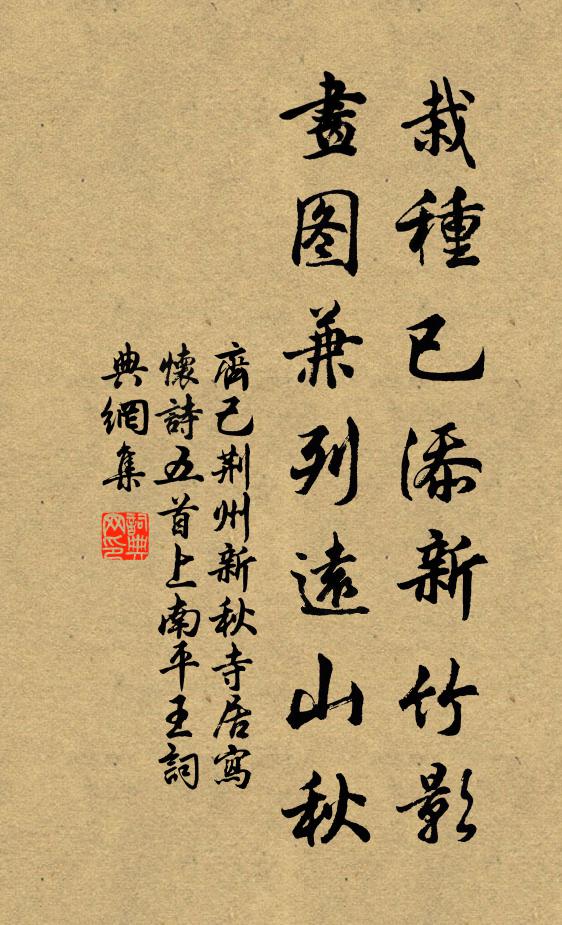 栽種已添新竹影
畫图兼列遠山秋
齊己荆州新秋寺居寫
懷詩五首上南平王詞
典網集
詞典
网印